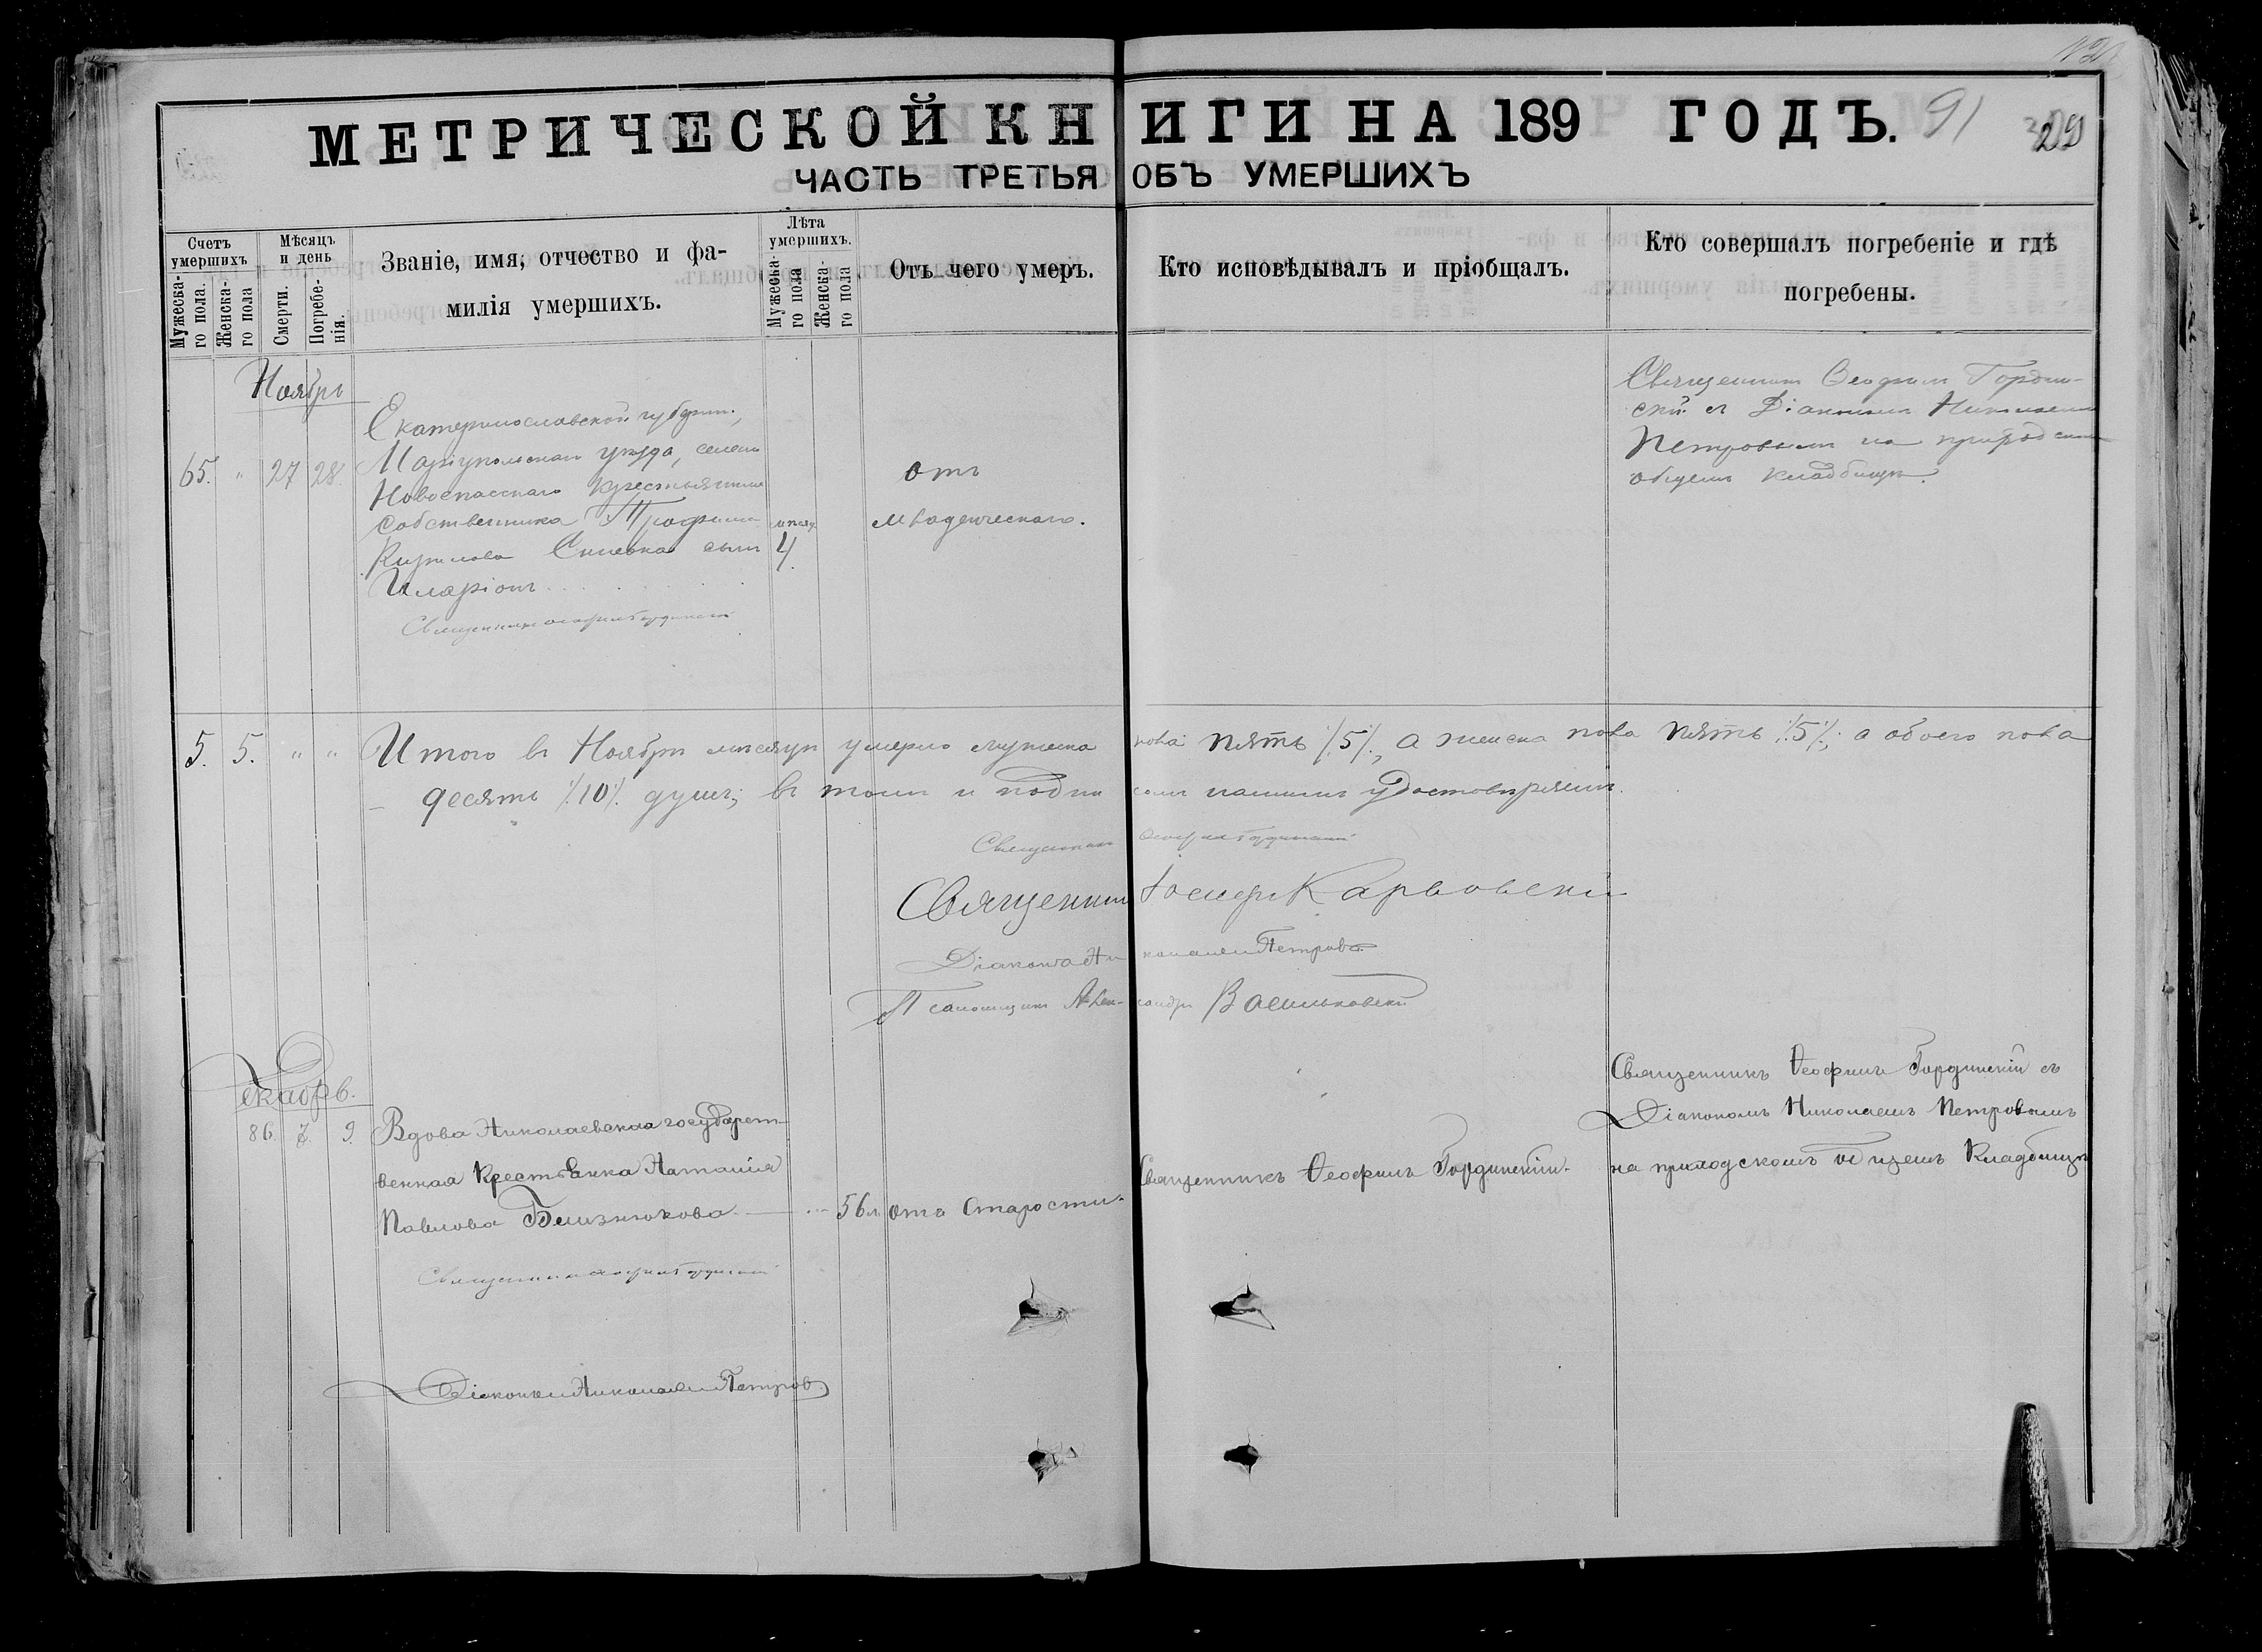 МЕТРИЧЕСКОЙ КНИГИ НА 189 ГОДЪ.
91
29
ЧАСТЬ ТРЕТЬЯ ОБЪ УМЕРШИХЪ
Счетъ умершихъ
Мужеска-го пола.
Женска-го пола
Мѣсяцъ и день
Смерти.
Погребе-нія.
Званіе, имя, отчество и фа-
милія умершихъ.
Лѣта умершихъ.
Мужеска-го пола
Женска-го пола
Отъ чего умеръ.
Кто исповѣдывалъ и пріобщалъ.
Кто совершалъ погребеніе и гдѣ
погребены.
Ноябрь
65. " 27 28.
Екатеринославской губерніи,
Маріупольскаго уѣзда, селенія
Новоспасскаго крестьянина
собственника Трофима
Кирилова сынъ
Иларіонъ
4
отъ
младенческаго.
Священникъ Ѳеофилъ Гордин-
скій съ Діакономъ Николаемъ
Петровымъ на приходскомъ
общемъ кладбищѣ.
Священникъ Ѳеофилъ Гординскій
5. 5. " " Итого въ Ноябрѣ мѣсяцѣ умерло мужеска пола пять /5/, а женска пола пять /5/; а обоего пола
десять /10/ душъ; въ томъ и подписомъ нашимъ удостовѣряемъ.
Священникъ Ѳеофилъ Гординскій
Священникъ Іосифъ Карповскій
Діаконъ Николай Петровъ
Псаломщикъ Александръ Васильковскій
Декабрь.
86. 7. 9.
Вдова Николаевская государст-
венная крестьянка Наталія
Павлова Близнюкова
56 л.
отъ старости.
Священникъ Ѳеофилъ Гординскій.
Священникъ Ѳеофилъ Гординскій съ
Діакономъ Николаемъ Петровымъ
на приходскомъ общемъ кладбищѣ
Священникъ Ѳеофилъ Гординскій
Діаконъ Николай Петровъ